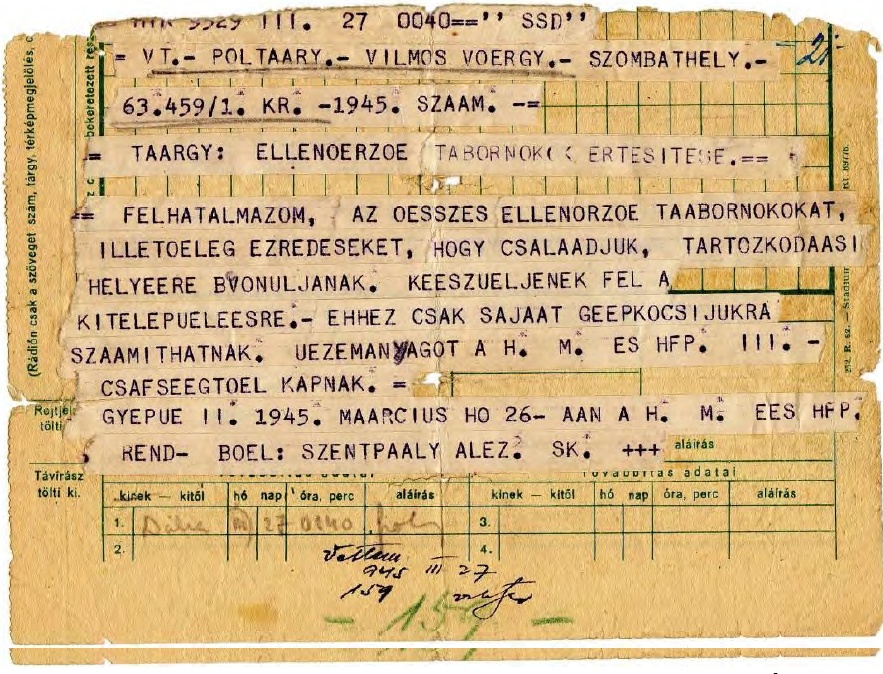 3529 III. 27 0040==" SSD"
= VT.- POLTAARY.- VILMOS VOERGY.- SZOMBATHELY.-
21
63.459/1. KR. -1945. SZAAM. -=
= TAARGY: ELLENOERZOE TABORNOKOK ERTESITESE.==
== FELHATALMAZOM, AZ OESSZES ELLENORZOE TAABORNOKOKAT,
ILLETOELEG EZREDESEKET, HOGY CSALAADJUK, TARTOZKODAASI
HELYEERE BVONULJANAK. KEESZUELJENEK FEL A
KITELEPUELEESRE.- EHHEZ CSAK SAJAAT GEEPKOCSIJUKRA
SZAAMITHATNAK. UEZEMANYAGOT A H. M. ES HFP. III. -
CSAFSEEGTOEL KAPNAK. =
GYEPUE II. 1945. MAARCIUS HO 26- AAN A H. M. EES HFP.
REND- BOEL: SZENTPAALY ALEZ. SK. +++
aláírás
(Rádión csak a szöveget szám, tárgy, térképmegjelölés,
bekeretezett
Rejtjel
tölti
Távirász
tölti ki.
Továbbítás adatai
kinek — kitől hó nap óra, perc aláírás kinek — kitől hó nap óra, perc aláírás
1. III 27 0040 3.
2. 4.
Vettem
945 III 27
159
- 159 -